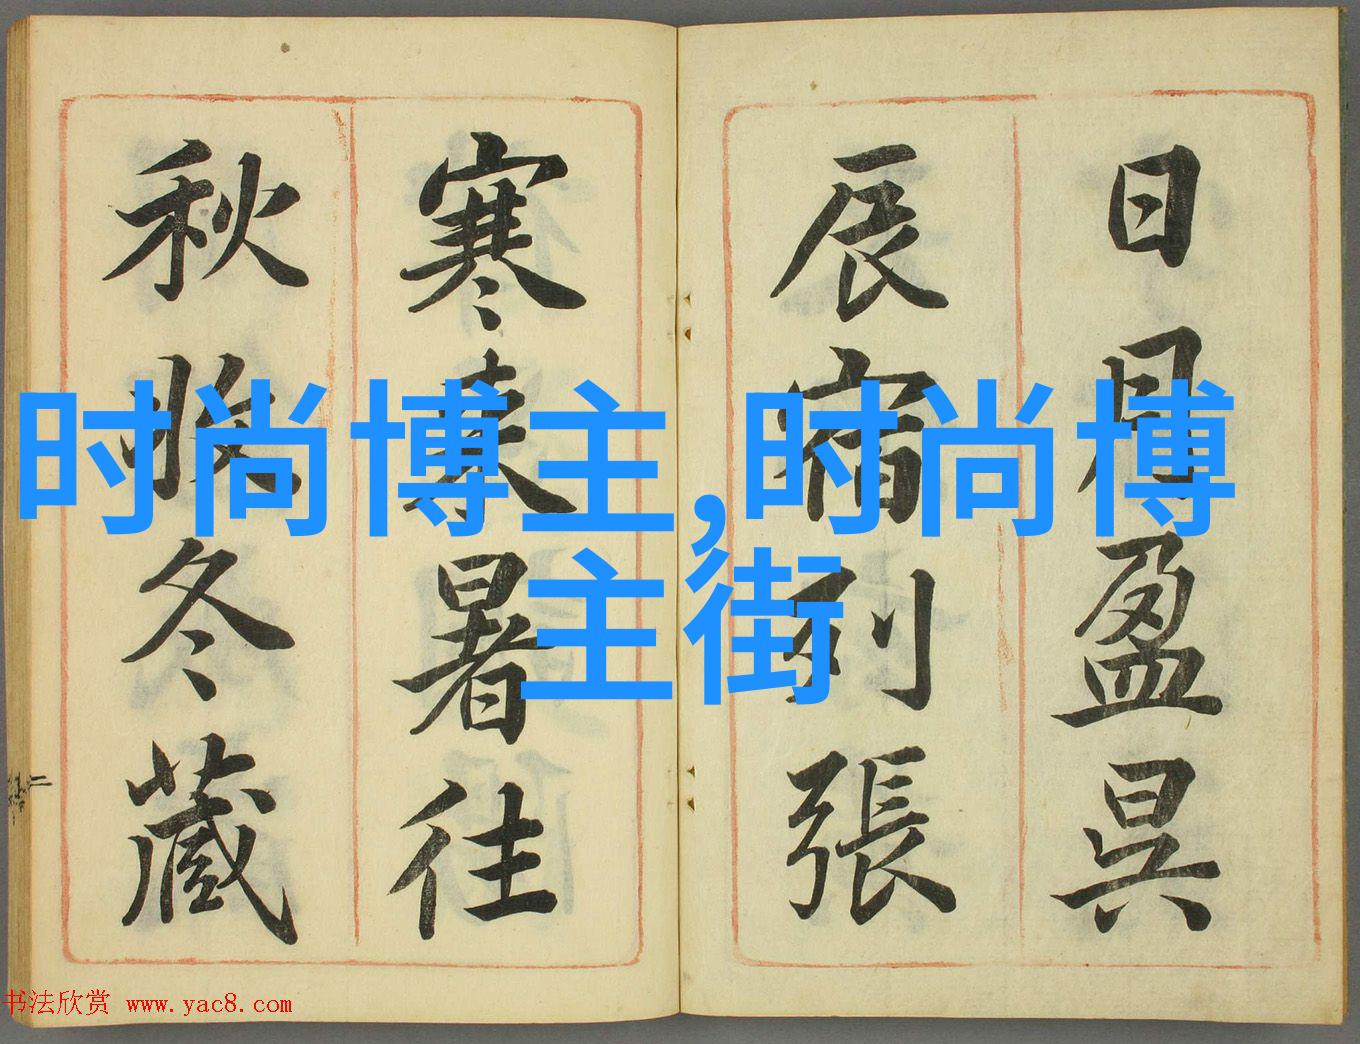 日月盈昃
辰宿列張
寒來暑往
秋收冬藏
时尚博主,时尚博
主街
书法欣赏 www.yac8.com